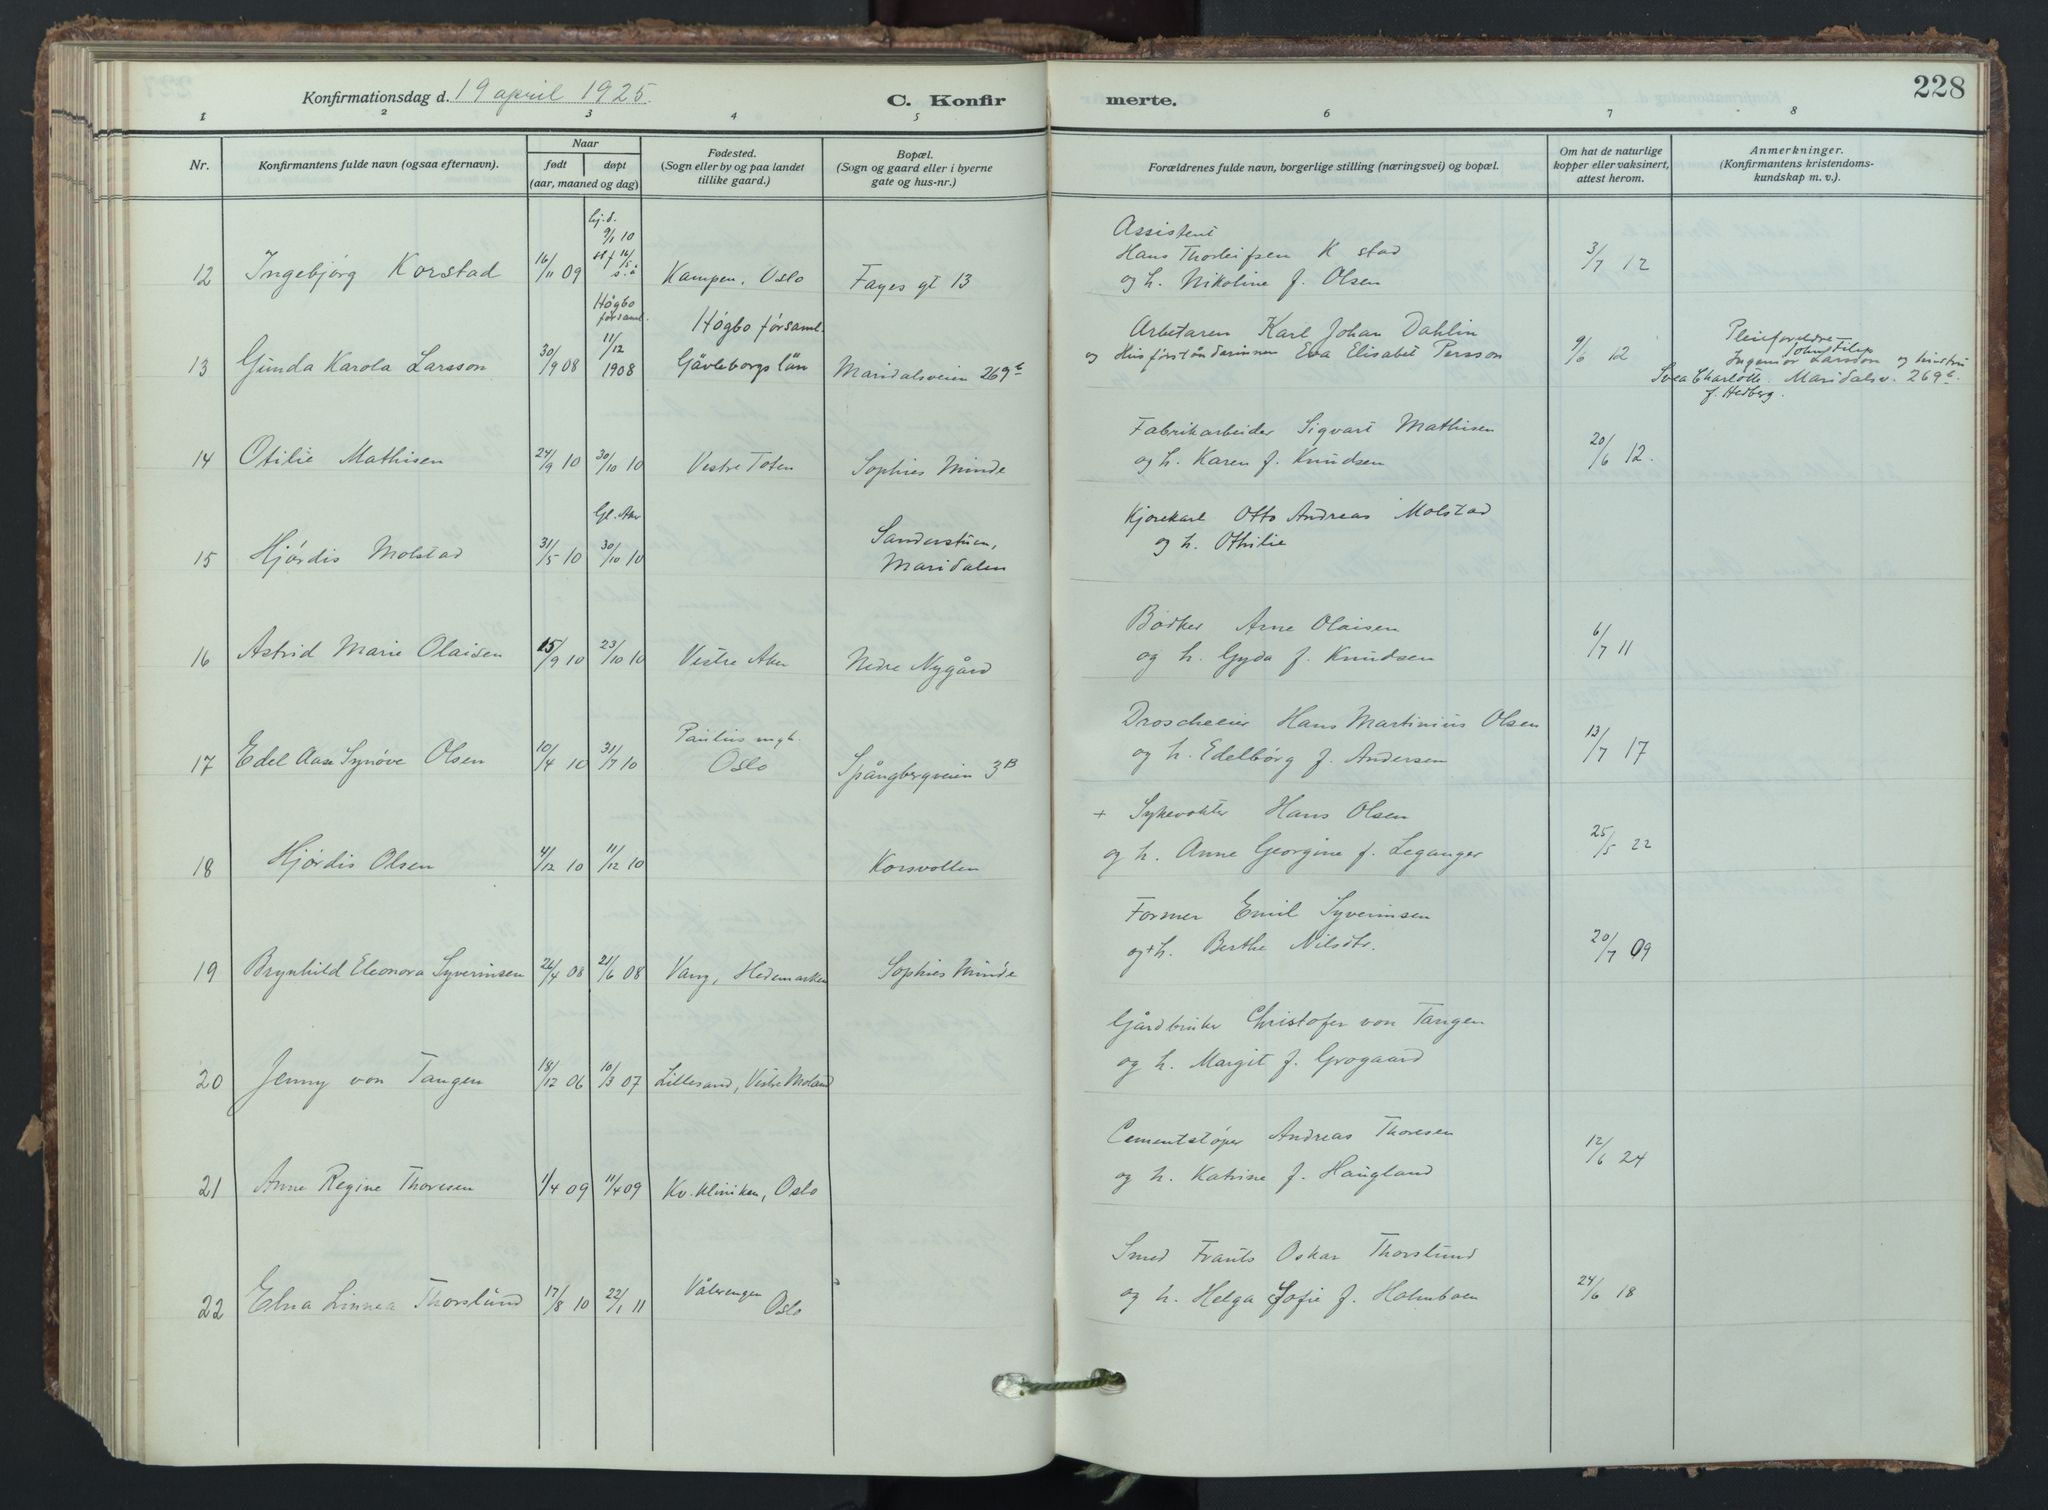 228
Konfirmationsdag d. 19 april 1925.
C. Konfirmerte.
1 2 3 4 5 6 7 8
Nr.
Konfirmantens fulde navn (ogsaa efternavn).
Naar
født døpt
(aar, maaned og dag)
Fødested.
(Sogn eller by og paa landet
tillike gaard.)
Bopæl.
(Sogn og gaard eller i byerne
gate og hus-nr.)
Forældrenes fulde navn, borgerlige stilling (næringsvei) og bopæl.
Om hat de naturlige
kopper eller vaksinert,
attest herom.
Anmerkninger.
(Konfirmantens kristendoms-
kundskap m. v.)
hj.d.
9/1 10
st f 16/5
s.å
12 Ingebjørg Korstad 16/11 09 Kampen, Oslo Fayes gt 13
Assistent
Hans Thorleifsen K stad
og h. Nikoline f. Olsen
3/7 12
Högbo
församl.
Högbo församl.
13 Gunda Karola Larsson 30/9 08 11/12 1908 Gävleborgs län Maridalsveien 269 b
Arbetaren Karl Johan Dahlin
og Husförståndarinnen Eva Elisabet Persson
9/6 12
Pleieforeldre
John Filip
Ingeniør Larsson og hustru
Svea Charlotte. Maridalsv. 269 b.
f. Hedberg.
14 Otilie Mathisen 24/9 10 30/10 10 Vestre Toten Sophies Minde
Fabrikarbeider Sigvart Mathisen
og h. Karen f. Knudsen
20/6 12.
Gl. Aker
15 Hjørdis Molstad 31/5 10 30/10 10 Sanderstuen,
Maridalen
Kjørekarl Otto Andreas Molstad
og h. Othilie
16 Astrid Marie Olaisen 15/9 10 23/10 10 Vestre Aker Nedre Nygård
Bødker Arne Olaisen
og h. Gyda f. Knudsen
6/7 11
Paulus mgh.
17 Edel Aase Synøve Olsen 10/4 10 31/7 10 Oslo Spångbergveien 3B
Droscheeier Hans Martinius Olsen
og h. Edelbørg f. Andersen
13/7 17
18 Hjørdis Olsen 4/12 10 11/12 10 Korsvollen
+ Sykevokter Hans Olsen
og h. Anne Georgine f. Leganger
25/5 22
19 Brynhild Eleonora Syverinsen 26/4 08 21/6 08 Vang, Hedemarken Sophies Minde
Former Emil Syverinsen
og + h. Berthe Nilsdtr.
20/7 09
20 Jenny von Tangen 18/12 06 10/3 07 Lillesand, Vestre Moland
Gårdbruker Christofer von Tangen
og h. Margit f. Grogaard
21 Anne Regine Thoresen 1/4 09 11/4 09 Kv. kliniken, Oslo
Cementstøper Andreas Thoresen
og h. Katrine f. Haugland
12/6 24
22 Elna Linnea Thorslund 17/8 10 22/1 11 Vålerengen
Oslo
Smed Frants Oskar Thorslund
og h. Helga Sofie f. Holmboen
24/6 18